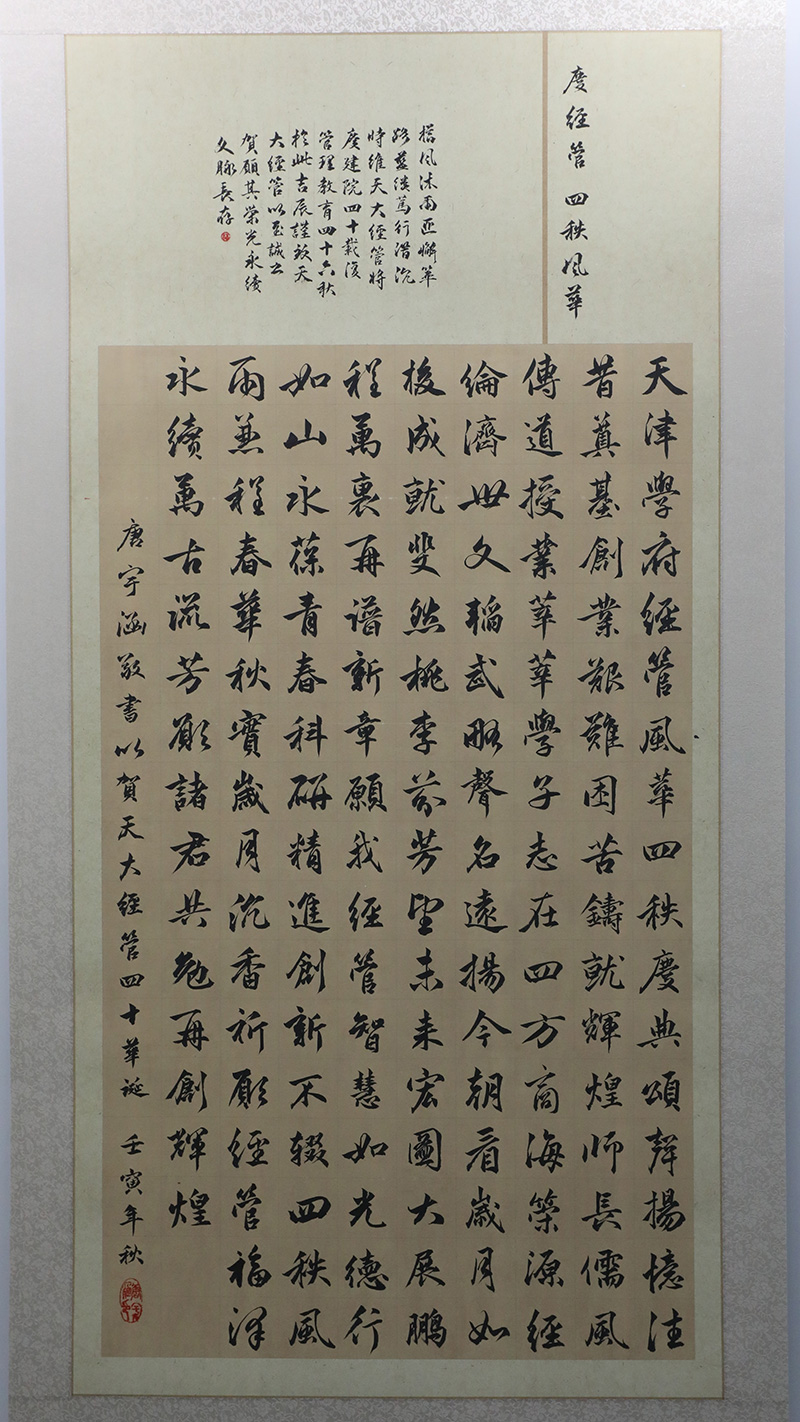 慶經管 四秩风華
櫛风沐雨匪懈筚
路蓝缕篤行潜沉
時维天大經管将
慶建院四十载復
管理教育四十六秋
於此吉辰謹致天
大經管以至誠之
賀願其榮光永續
久脉長存
天津學府經管風華四秩慶典頌聲揚憶往
昔奠基創業艱難困苦鑄就輝煌師長儒風
傳道授業莘莘學子志在四方商海築源經
綸濟世文韜武略聲名遠揚今朝看歲月如
梭成就斐然桃李芬芳望未来宏圖大展鵬
程萬裏再譜新章願我經管智慧如光德行
如山永葆青春科研精進創新不輟四秩風
雨兼程春華秋實歲月沉香祈願經管福澤
永續萬古流芳願諸君共勉再創輝煌
唐宇涵敬書以賀天大經管四十華誕 壬寅年秋